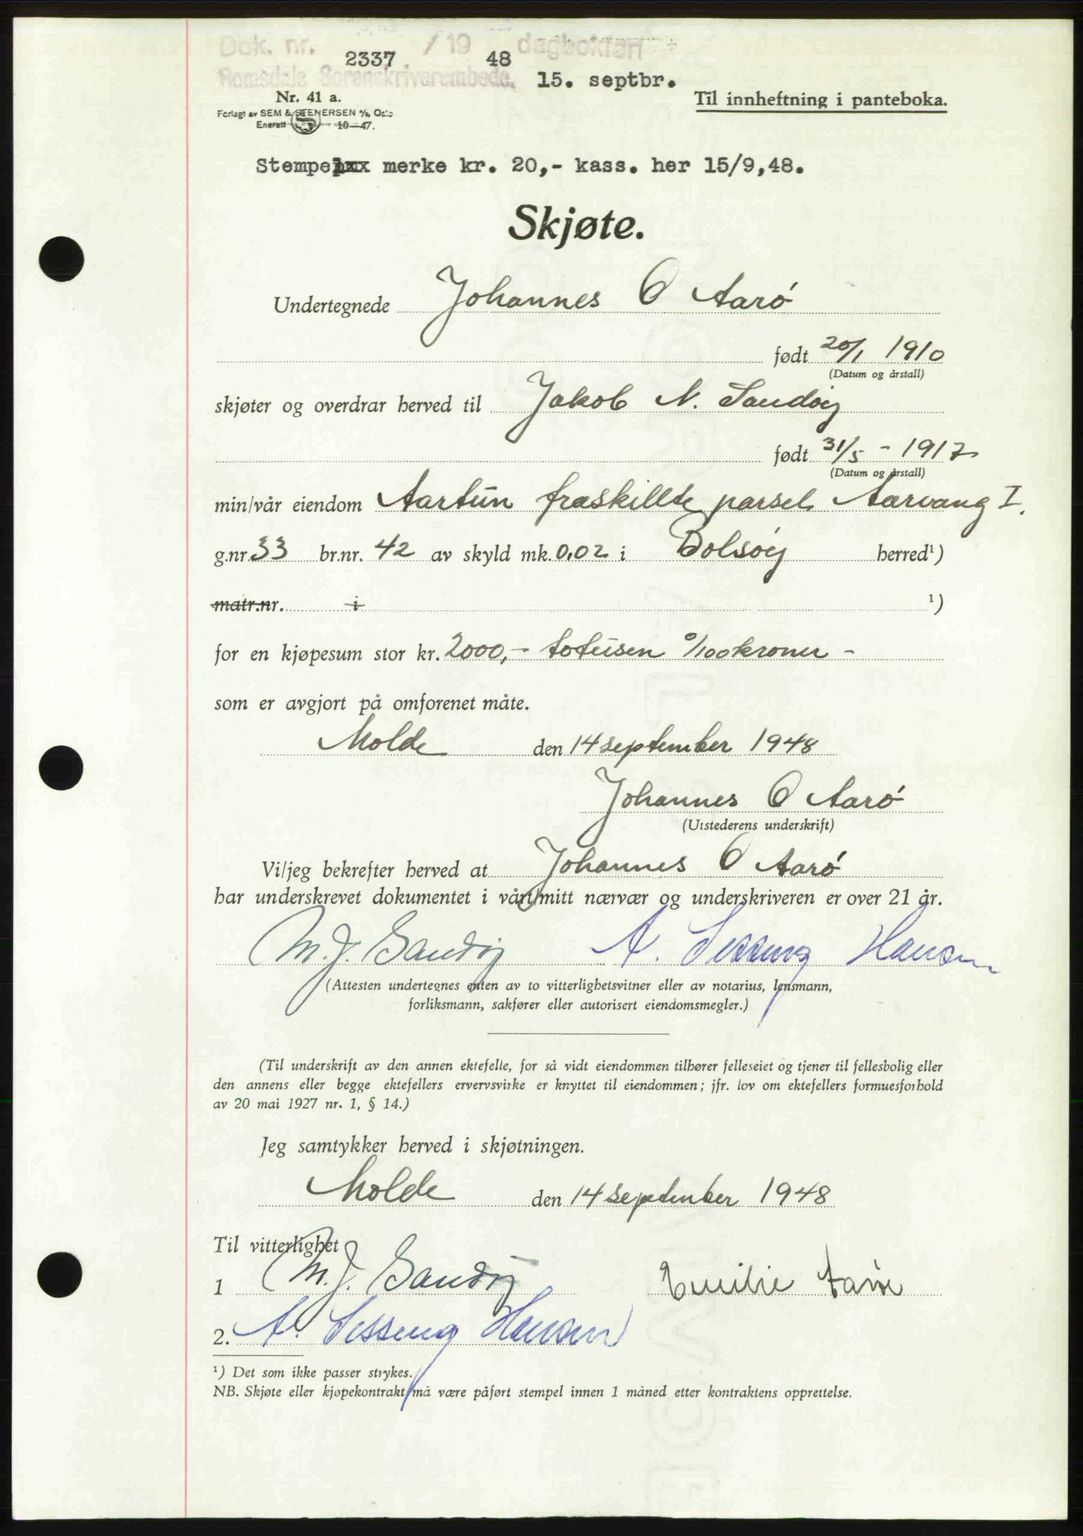 Dok. nr. 2337 / 19 48 dagbokført
Romsdals Sorenskriverembede, 15. septbr.
Nr. 41 a.
Til innheftning i panteboka.
Forlagt av SEM & STENERSEN A/S, Oslo
Enerett 10—47.
Stempelxx merke kr. 20,- kass. her 15/9,48.
Skjøte.
Undertegnede Johannes O Aarø
født 20/1 1910
(Datum og årstall)
skjøter og overdrar herved til Jakob N. Sandøy
født 31/5 - 1917
(Datum og årstall)
min/vår eiendom Aartun fraskillte parsel Aarvang I.
g.nr. 33 br.nr. 42 av skyld mk. 0,02 i Bolsøy herred¹)
matr.nr. i ¹)
for en kjøpesum stor kr. 2000,- totusen 0/100 kroner -
som er avgjort på omforenet måte.
Molde den 14 september 1948
Johannes O Aarø
(Utstederens underskrift)
Vi/jeg bekrefter herved at Johannes O Aarø
har underskrevet dokumentet i vårt/mitt nærvær og underskriveren er over 21 år.
M. J. Sandøy A. Sesseng Hansen
(Attesten undertegnes enten av to vitterlighetsvitner eller av notarius, lensmann,
forliksmann, sakfører eller autorisert eiendomsmegler.)
(Til underskrift av den annen ektefelle, for så vidt eiendommen tilhører felleseiet og tjener til fellesbolig eller
den annens eller begge ektefellers ervervsvirke er knyttet til eiendommen; jfr. lov om ektefellers formuesforhold
av 20 mai 1927 nr. 1, § 14.)
Jeg samtykker herved i skjøtningen.
Molde den 14 september 1948
Til vitterlighet
1 M. J. Sandøy Emilie Aarø
2. A. Sesseng Hansen
¹) Det som ikke passer strykes.
NB. Skjøte eller kjøpekontrakt må være påført stempel innen 1 måned etter kontraktens opprettelse.